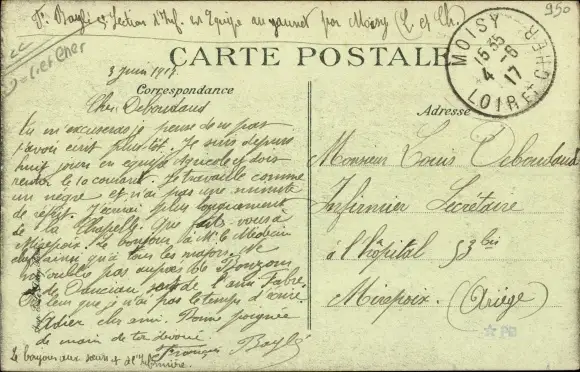 950
F. Baylé 3e Section d'Inf. en Equipe au jaunet par Moisy (L. et Ch.)
Loir et Cher
CARTE POSTALE
MOISY
15 35
4 - 6
17
LOIR ET CHER
3 Juin 1917.
Correspondance
Cher Deboudaud
Tu m'excuseras je pense de ne pas
t'avoir écrit plus tôt. Je suis depuis
huit jours en équipe agricole et dois
rentrer le 10 courant. Je travaille comme
un nègre et n'ai pas une minute
de répit. J'écrirai plus longuement
de la Chapelle. Que fait-vous à
Mirepoix. Le bonjour à Mr le Médecin
Chef ainsi qu'à tous les majors. Ne
m'oublie pas auprès de
de de l'ami Fabre.
Dis leur que je n'ai pas le temps d'écrire.
Adieu cher ami. Bonne poignée
de main de ton dévoué.
François Baylé
Le bonjour aux sœurs et à l'infirmière.
Adresse
Monsieur Louis Deboudaud
Infirmier Secrétaire
à l'hôpital 53 bis
Mirepoix. (Ariège)
PB